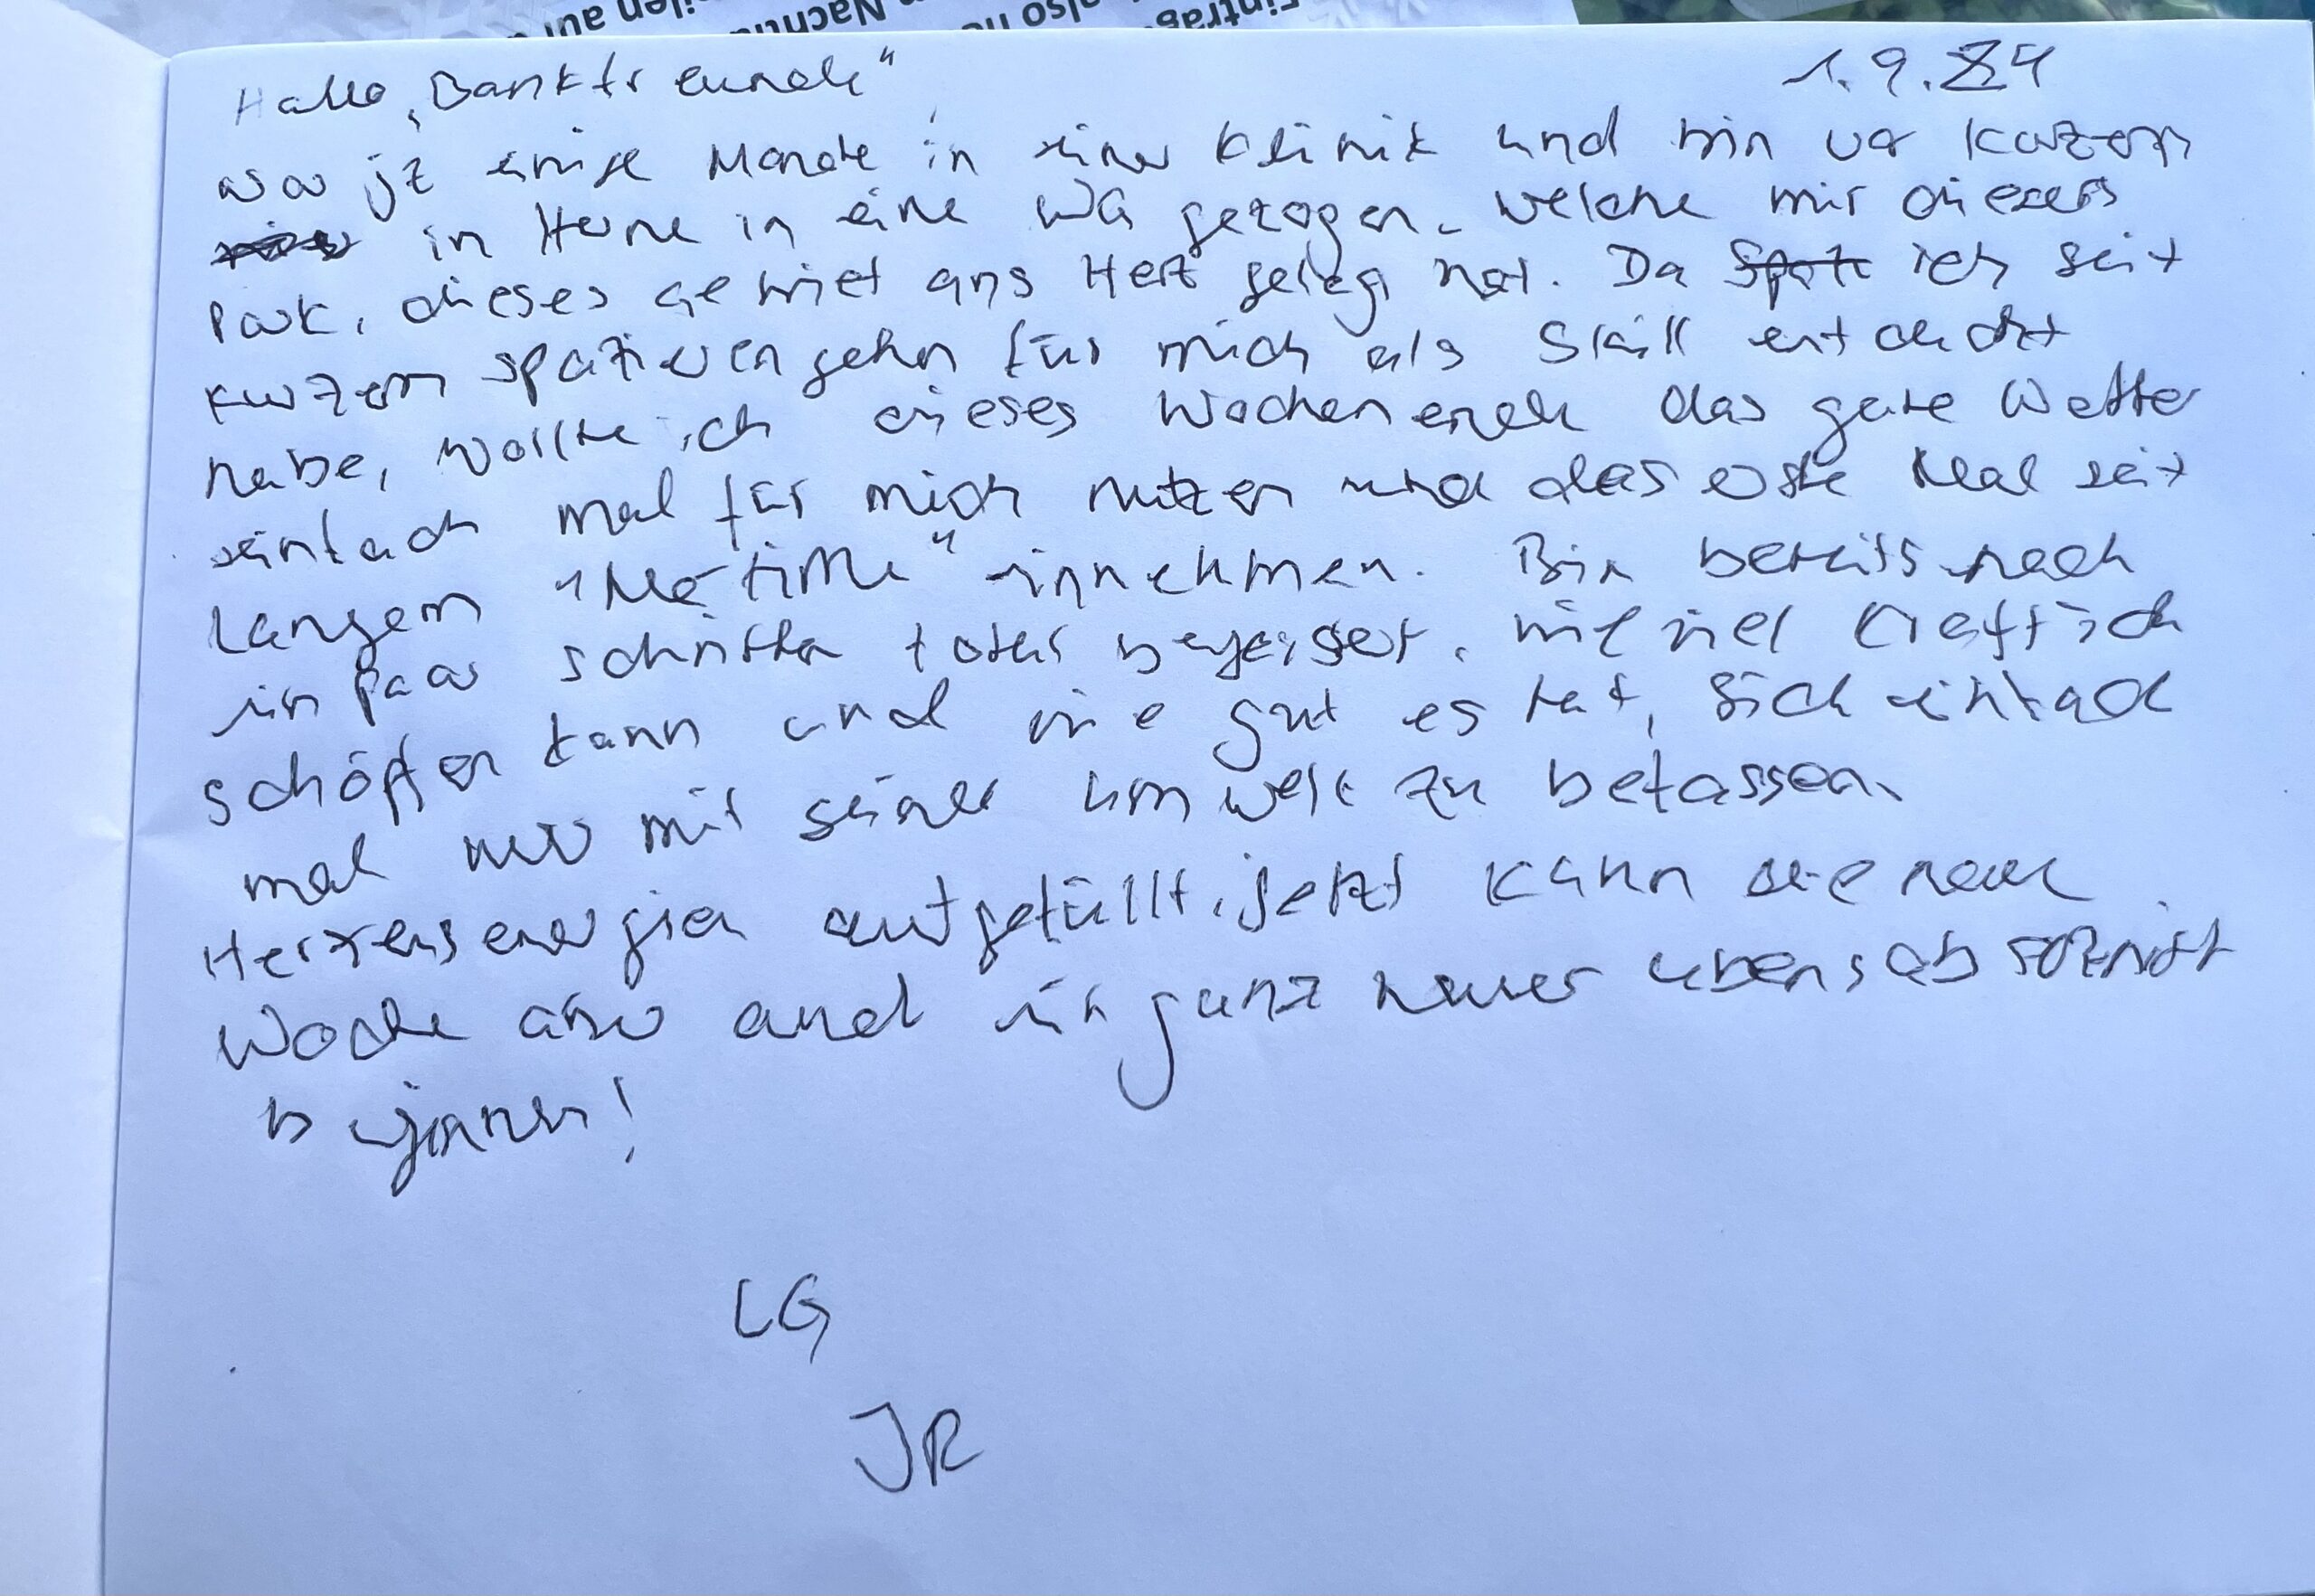 eilen auf
Nachti
also ne
Einträg
Hallo „Bankfreunde" 1.9.24
war jz einige Monate in einer Klinik und bin vor kurzem
in Herne in eine WG gezogen, welche mir diesers
Park, dieses Gebiet ans Herz gelegt hat. Da ich seit
kurzem spazieren gehn für mich als Skill entdeckt
habe, wollte ich dieses Wochenende das gute Wetter
einfach mal für mich nutzen und das erste Mal seit
langem "Me-time" einnehmen. Bin bereits nach
ein paar schritten total begeistert, wie viel Kraft ich
schöpfen kann und wie gut es tat, sich einfach
mal nur mit seiner Umwelt zu befassen.
Herzensenergien aufgefüllt, jetzt kann die neue
Woche aber auch ein ganz neuer Lebensabschnitt
beginnen!
LG
JR